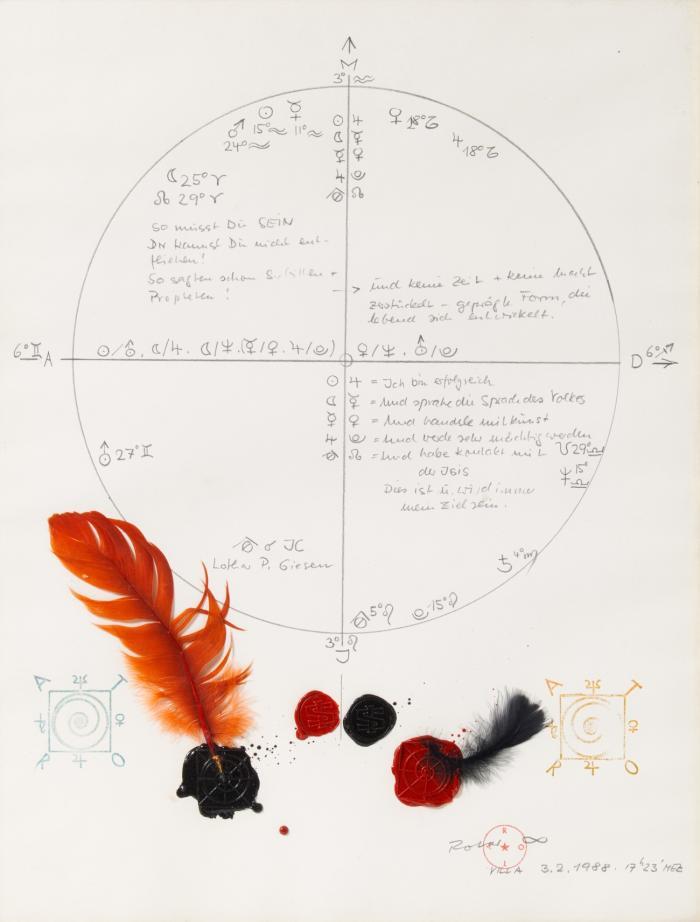 M
3° ♒
☉ ☿
♂ 15°♒ 11°♒
24°♒
☉ ♃
☾ ☿
☿ ♀
♀ 18°♑
♃ 18°♑
☾ 25°♈
☊ 29°♈
So musst Du SEIN
Dir kannst Du nicht ent-
fliehen!
So sagten schon Sibyllen +
Propheten!
→ und keine Zeit + keine Macht
zerstückelt – geprägte Form, die
lebend sich entwickelt.
6°♊ A
D 6°♐
☉ ♃ = Ich bin erfolgreich
☾ ☿ = und spreche die Sprache des Volkes
☿ ♀ = und handele mit Kunst
= und werde sehr mächtig werden
☊ = und habe Kontakt mit
der ISIS
Dies ist u. wird immer
mein Ziel sein.
29°♎
♆ 15°
27°♊
☌ IC
Lothar P. Giesen
♄ 4°♏
5°♌
15°♌
3°♌
I
A ♃ T
♀
R ♃ O
A ♃ T
♀
R ♃ O
R
O
I
VILLA 3.2.1988. 17h23' MEZ